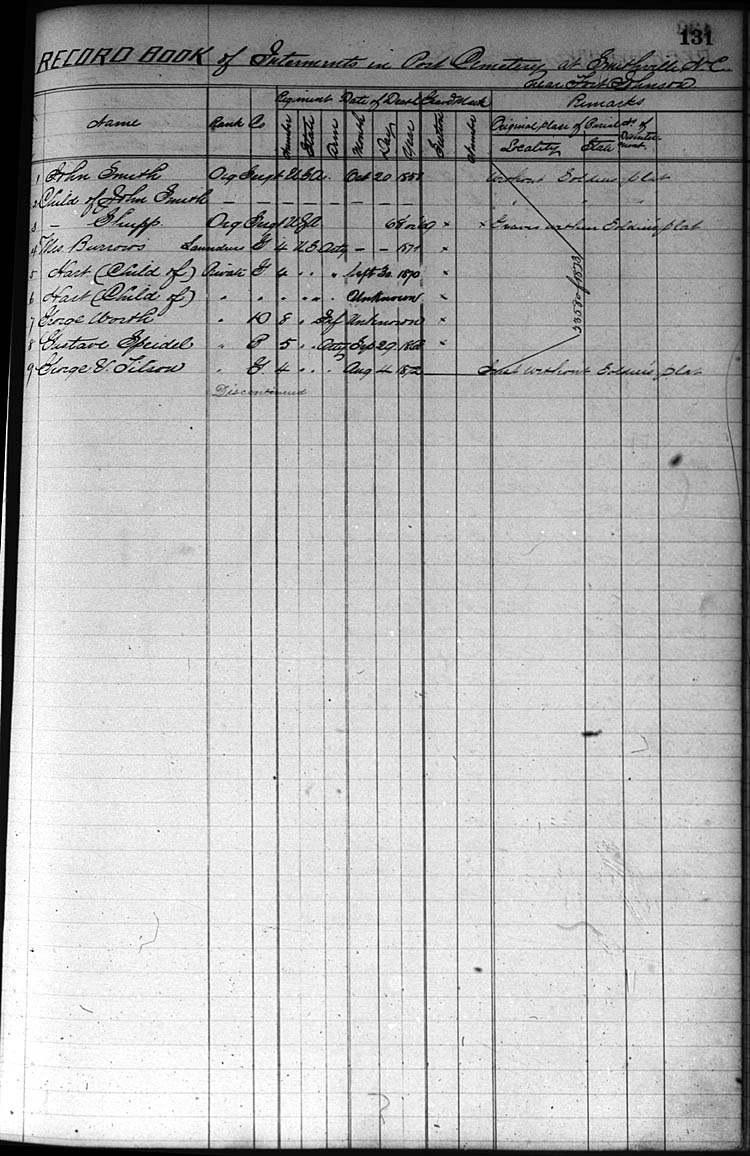 131
RECORD BOOK of Interments in Post Cemetery at Smithville N.C.
near Fort Johnson
Regiment Date of Death Grave Mark Remarks
Name Rank Co Number State Arm Month Day Year Number Original place of Burial No of
Locality State
1 John Smith Org Sergt U.S.A. Oct 20 1858 Without Soldiers plat
2 Child of John Smith — — — — — — — " " "
3 — Shupp Org Sergt U.S.A 68 or 69 × × Graves within Soldiers plat
4 Mrs. Burrows Laundress G 4 U.S Arty — — 187 ×
5 Hart (Child of) Private G 4 " " " Sept 30 1870 ×
6 Hart (Child of) " " " " " " Unknown ×
7 George Worth " D 8 " Inf Unknown ×
8 Gustave Speidel " 5 " " Arty Sep 29 ×
9 George Tilson " G 4 " " " Aug 4 1872 Just without Soldier's plat
Discontinued
of 1873